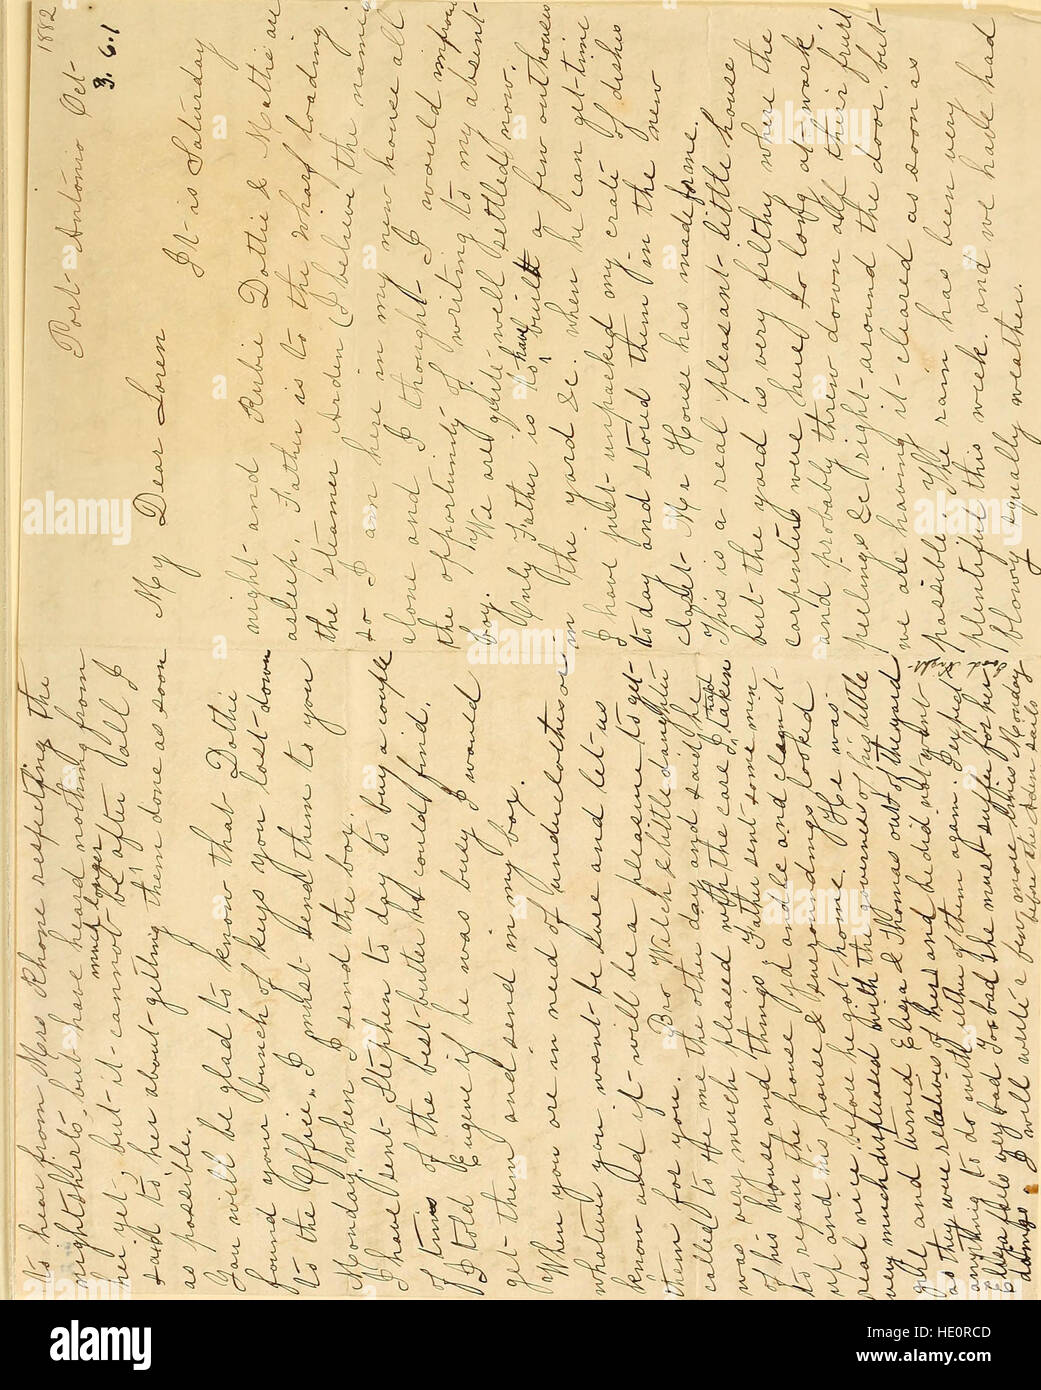 1882
Port Antonio Oct
3. 6.1
My Dear Loren
It is Saturday
night and Rubie Dottie & Mattie are
asleep. Father is to the wharf loading
the steamer Arden (I believe the name is
so I am here in my new house all
alone and I thought I would improve
the opportunity of writing to my absent
boy. We are quite well settled now.
Only Father is to have built a few outhouses
in the yard &c. when he can get time
I have just unpacked my crate of dishes
to day and stored them in the new
closet Mr House has made for me.
This is a real pleasant little house
but the yard is very filthy where the
carpenters were here so long at work
and probably threw down all their fruit
peelings &c right around the door, but
we are having it cleared as soon as
possible. The rain has been very
plentiful this week. and we have had
blowy squally weather.
to hear from Mrs Rhone respecting the
nightshirts, but have heard nothing from
her yet, but it cannot be much longer after all I
said to her about getting them done as soon
as possible.
You will be glad to know that Dottie
found your bunch of keys you lost down
to the Office. I must send them to you
Monday when I send the box.
I have sent Stephen to day to buy a couple
of tins of the best butter he could find.
I told Eugene if he was busy I would
get them and send in my box.
When you are in need of underclothes or
whatever you want be sure and let us
know and it will be a pleasure to get
them for you. Bro Welch & little daughter
called to see me the other day and said he
was very much pleased with the care I had taken
of his House and things. Father sent some men
to repair the house yd and le and cleaned
up and his house & surroundings looked
real nice before he got home. He was
very much displeased with the governess of his little
girl and turned Eliza & Thomas out of the yard
as they were relations of hers and he did not want
anything to do with either of them again.
Eliza feels very bad Too bad she must suffer for her
doings. I will write a few more lines Monday
before the Aden sails
Good Night
alamy
HE0RCD
www.alamy.com